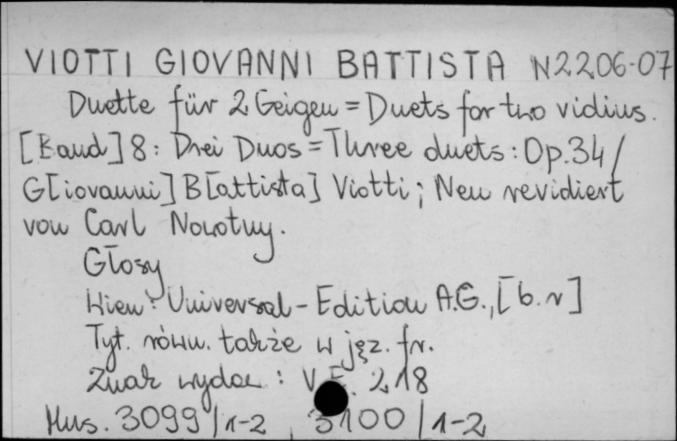 VIOTTI GIOVANNI BATTISTA N2206-07
Duette für 2 Geigen = Duets for two violins.
[Band] 8: Drei Duos = Three duets: Op.34/
G[iovanni] B[attista] Viotti; Neu revidiert
von Carl Nowotny.
Głosy
Wien: Universal-Edition A.G., [b.r]
Tyt. równ. także w jęz. fr.
Znak wydaw: 218
Mus. 3099/1-2, 3100/1-2